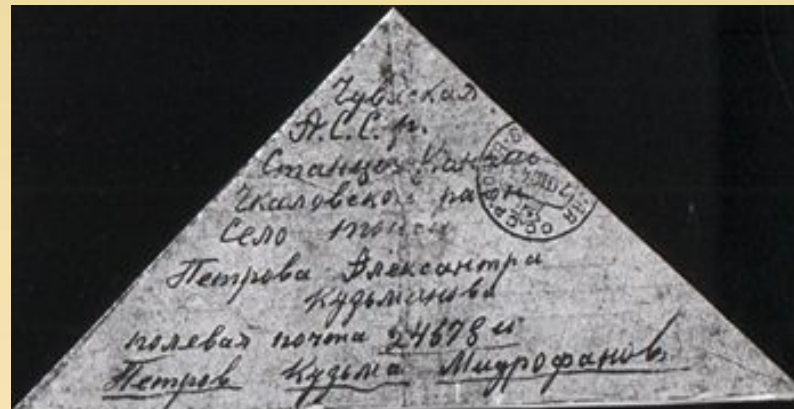 Чувская
А.С.С.р.
Станцех Канаш
Чкаловской район
Село
Петрова Александра
Кудьманова
полевая почта 24678 и
Петров Кудьма Мидрофанов